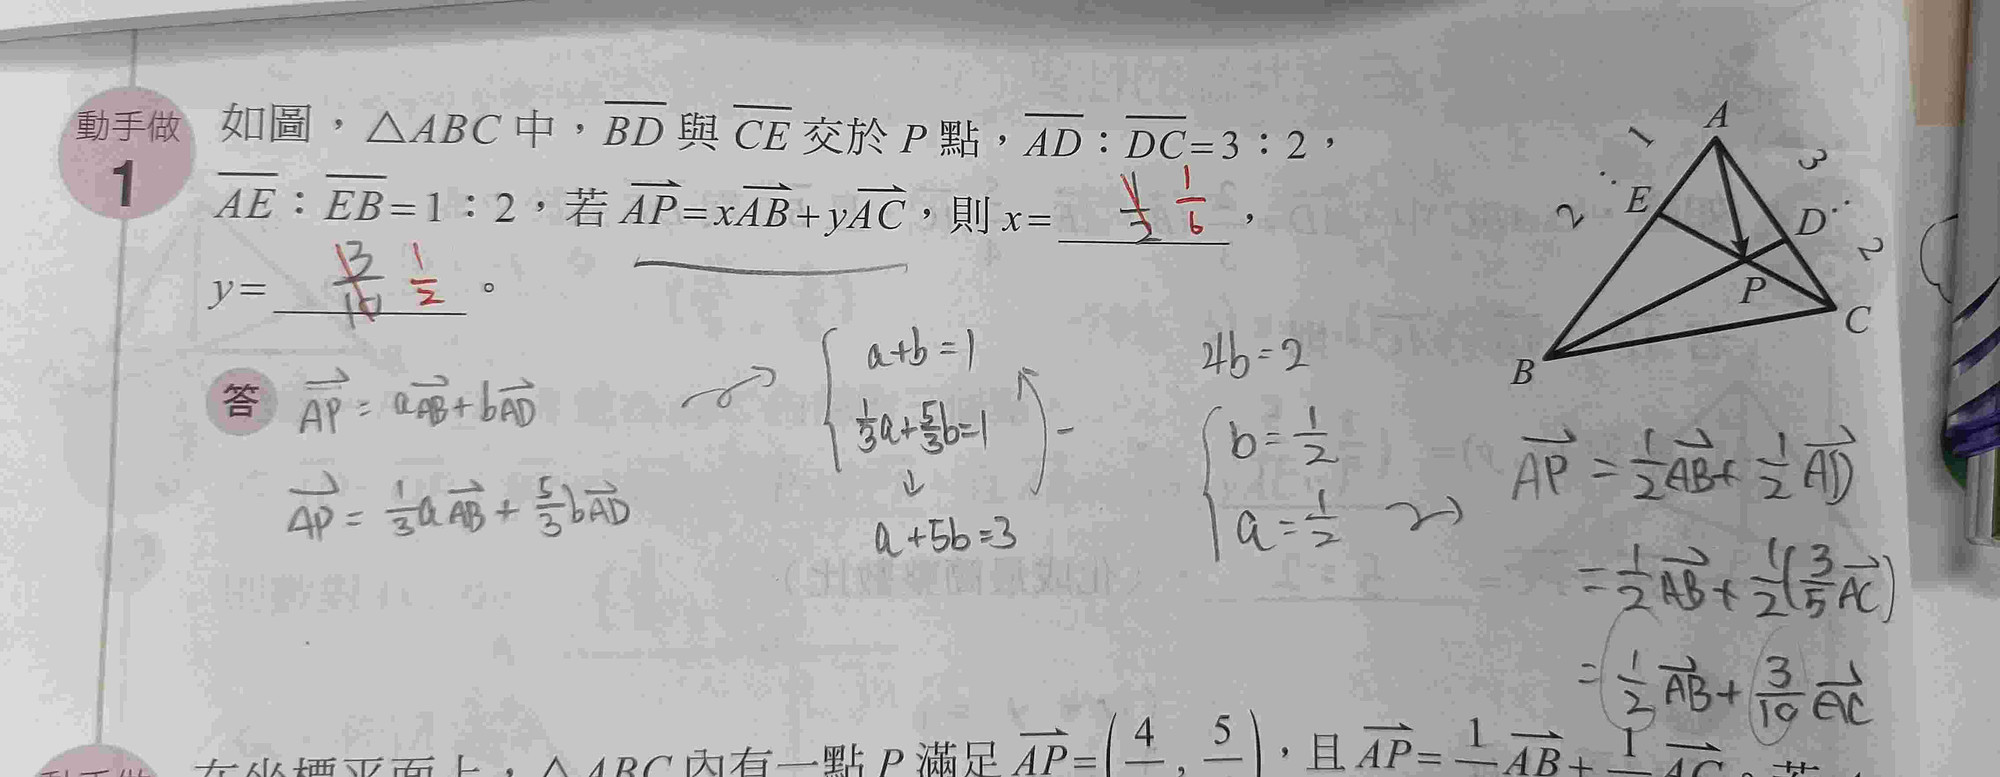 動手做
1
如圖，△ABC 中，BD 與 CE 交於 P 點，AD：DC=3：2，
AE：EB=1：2，若 AP=xAB+yAC，則 x= 1/2 1/6 ，
y= 3/10 1/2 。
A
1
3
E
D
2
2
P
C
B
答
AP = aAB + bAD
AP = 1/3 aAB + 5/3 bAD
a+b=1
1/3 a + 5/3 b = 1
↓
a+5b=3
−
4b=2
b = 1/2
a = 1/2
AP = 1/2 AB + 1/2 AD
= 1/2 AB + 1/2 (3/5 AC)
= 1/2 AB + 3/10 AC
動手做
在坐標平面上，△ABC 內有一點 P 滿足 AP=(4, 5)，且 AP= 1 AB+ 1 AC。若